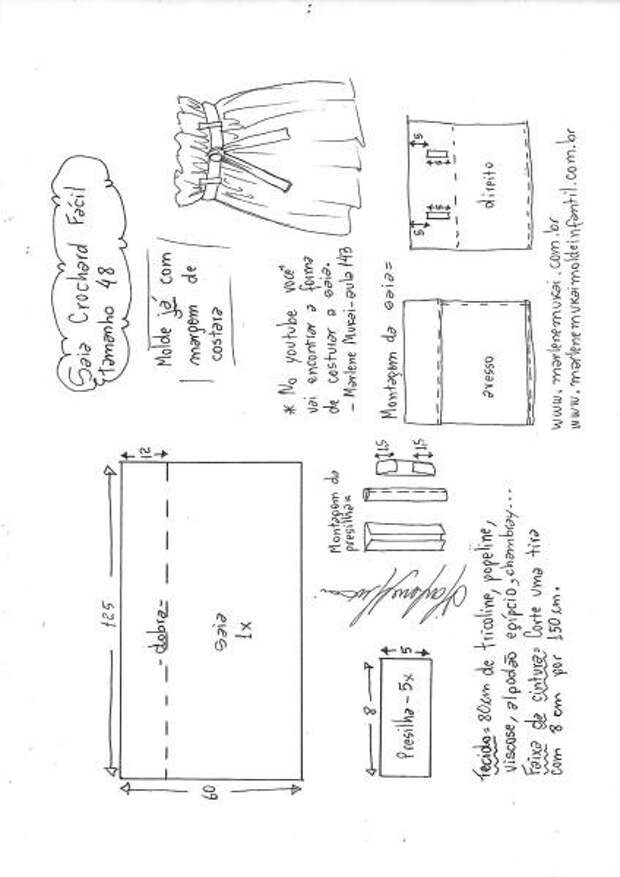 Saia Crochard Fácil
tamanho 48
Molde já com
margem de
costura
* No youtube você
vai encontrar a forma
de costurar a saia.
- Marlene Mukai - aula 143
125
12
- dobra =
saia
1x
60
Montagem da
presilha =
1.5
1.5
8
5
Presilha - 5x
Montagem da saia =
avesso
direito
5
5
5
5
Tecido = 80cm de tricoline, popeline,
viscose, algodão egípcio, chambray...
Faixa de cintura = Corte uma tira
com 8 cm por 150 cm.
www.marlenemukai.com.br
www.marlenemukaimoldeinfantil.com.br